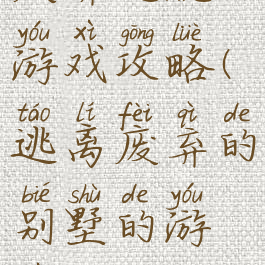 yóu xì gōng lüè
游戏攻略(
táo lí fèi qì de
逃离废弃的
bié shù de yóu
别墅的游